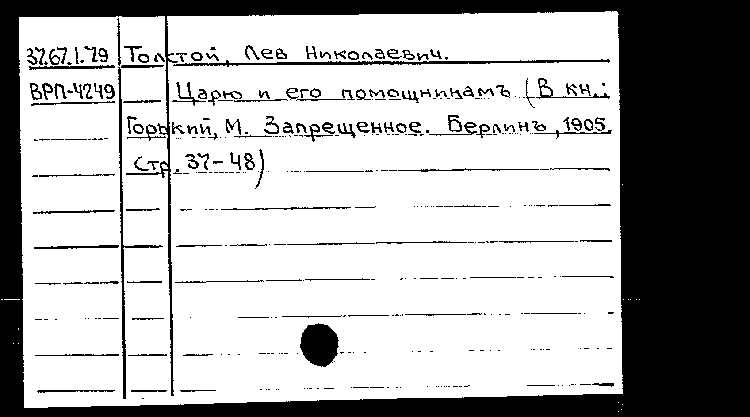 37.67.1.79 Толстой, Лев Николаевич.
ВРП-4249 Царю и его помощникамъ (В кн.:
Горький, М. Запрещенное. Берлинъ, 1905.
Стр. 37-48)